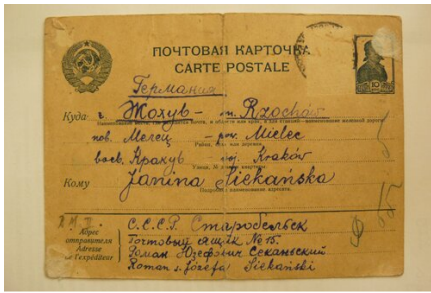 ПОЧТОВАЯ КАРТОЧКА
CARTE POSTALE
Германия
10
Куда г. Жохув - m. Rzochów
пов. Мелец - pow. Mielec
воев. Кракув - woj. Kraków
Кому Janina Siekańska
Адрес
отправителя
Adresse
de l'expéditeur
С.С.С.Р. Старобельск
Почтовый ящик № 15.
Роман Юзефович Секаньский
Roman s. Józefa Siekański